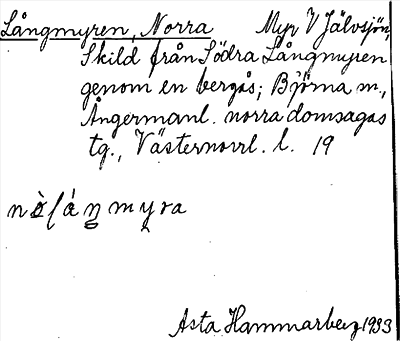 Långmyren, Norra Myr V Jälvsjön,
Skild från Södra Långmyren
genom en bergås; Björna sn.,
Ångermanl. norra domsagas
tg., Västernorrl. l. 19
Asta Hammarberg 1933